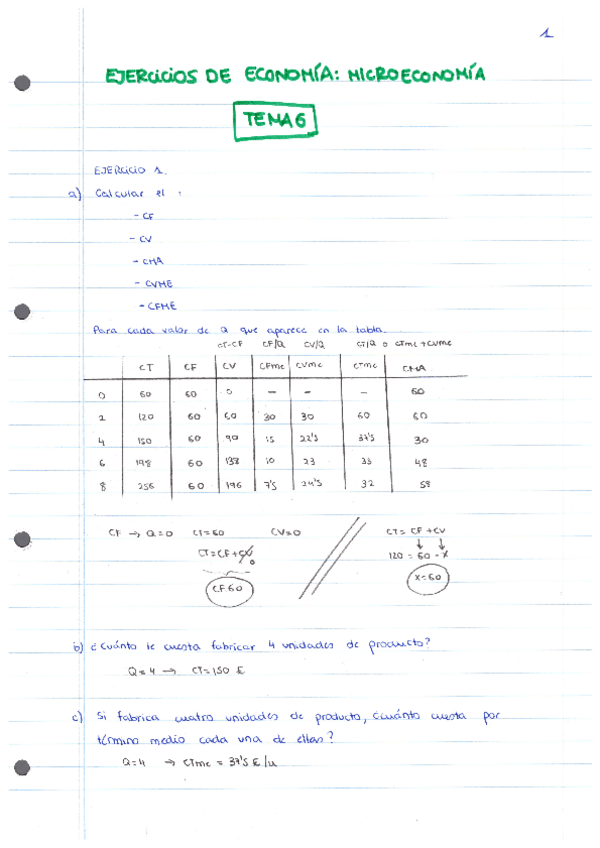 1
EJERCICIOS DE ECONOMÍA: MICROECONOMÍA
TEMA 6
EJERCICIO 1.
a) Calcular el :
- CF
- CV
- CMA
- CVME
- CFME
Para cada valor de Q que aparece en la tabla.
CT-CF CF/Q CV/Q CT/Q o CTme + CVme
CT CF CV CFme CVme CTme CMA
0 60 60 0 - - - 60
2 120 60 60 30 30 60 60
4 150 60 90 15 22'5 37'5 30
6 198 60 138 10 23 33 48
8 256 60 196 7'5 24'5 32 58
CF → Q=0 CT=60 CV=0 CT= CF +CV
CT=CF+CV 0 120 = 60 - x
CF 60 x=60
b) ¿Cuánto le cuesta fabricar 4 unidades de producto?
Q=4 → CT=150 €
c) Si fabrica cuatro unidades de producto, ¿cuánto cuesta por
término medio cada una de ellas?
Q=4 → CTme = 37'5 €/u